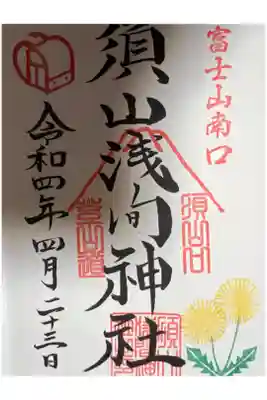 富士山南口
須山浅间神社
須山口
登山道
令和四年四月二十三日